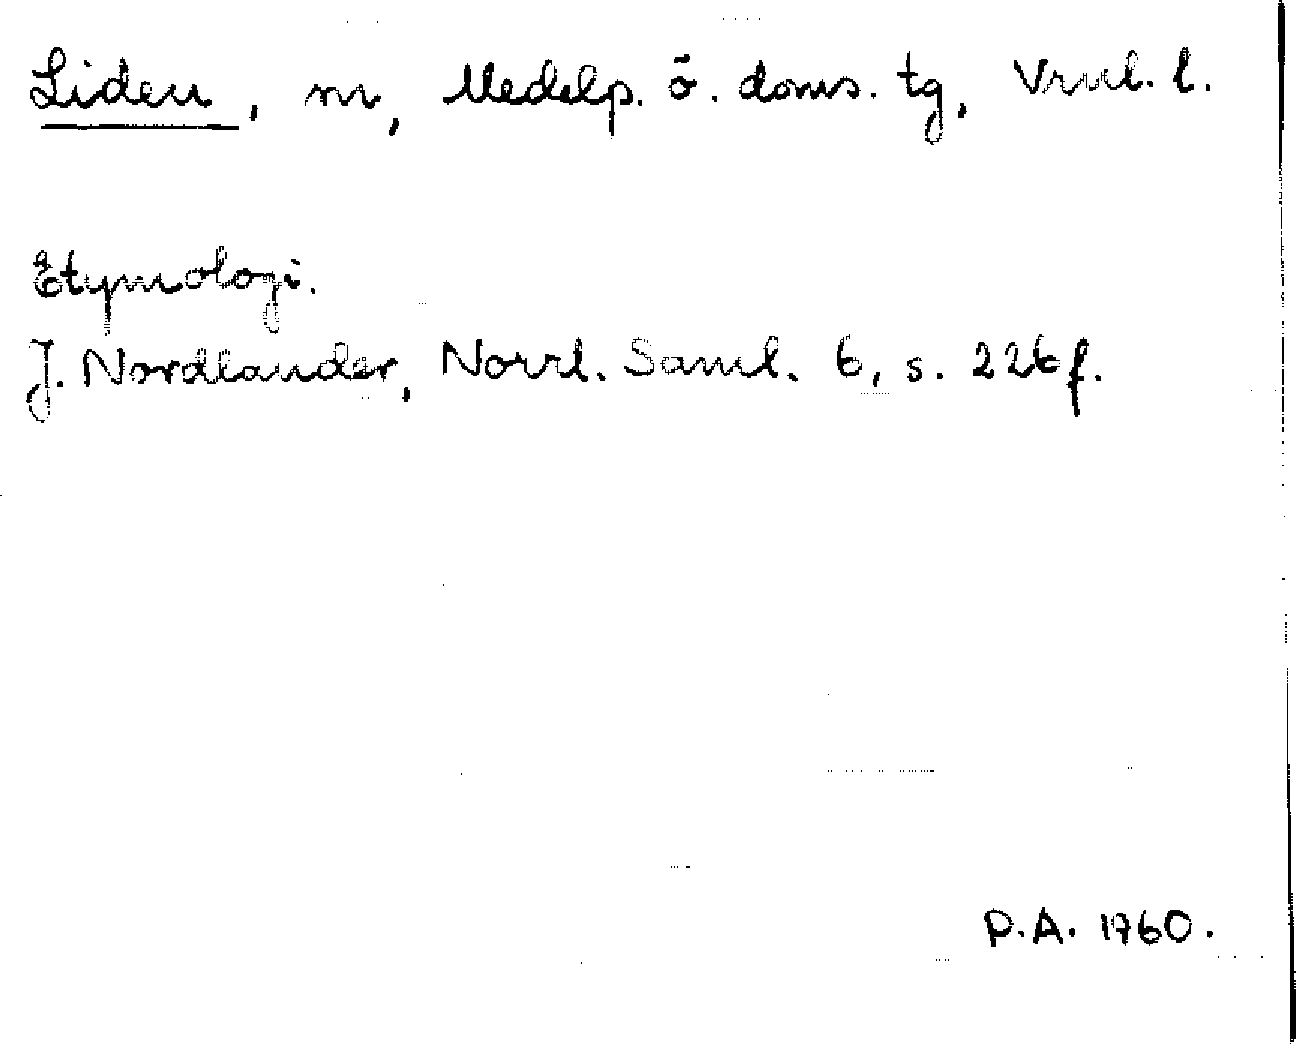 Liden, sn, Medelp. ö. doms. tg, Vrnl. l.
Etymologi.
J. Nordlander, Norrl. Saml. 6, s. 226 f.
P.A. 1960.